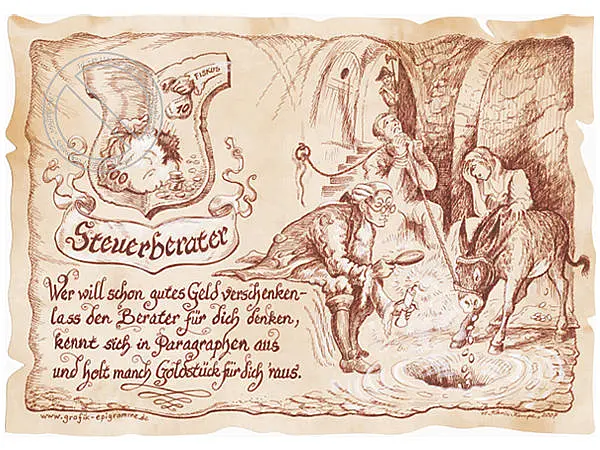 FISKUS
10
Steuerberater
Wer will schon gutes Geld verschenken-
lass den Berater für dich denken,
kennt sich in Paragraphen aus
und holt manch Goldstück für dich 'raus.
www.grafik-epigramme.de